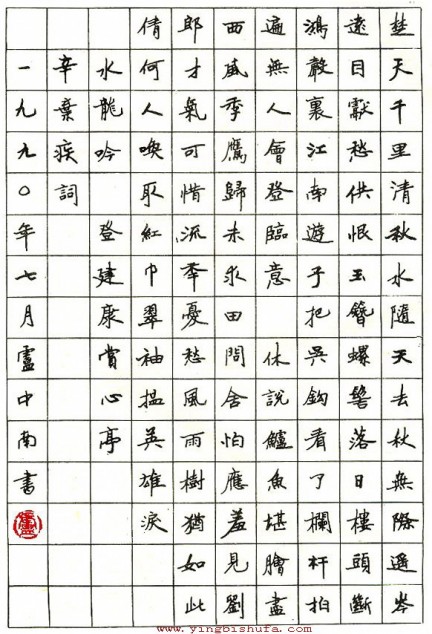 楚天千里清秋水隨天去秋無際遥岑
遠目獻愁供恨玉簪螺髻落日樓頭斷
鴻聲裏江南遊子把吳鈎看了欄杆拍
遍無人會登臨意 休說鱸魚堪膾盡
西風季鷹歸未求田問舍怕應羞見劉
郎才氣可惜流年憂愁風雨樹猶如此
倩何人喚取紅巾翠袖搵英雄淚
水龍吟 登建康賞心亭
辛棄疾詞
一九九〇年七月盧中南書
www.yingbishufa.com